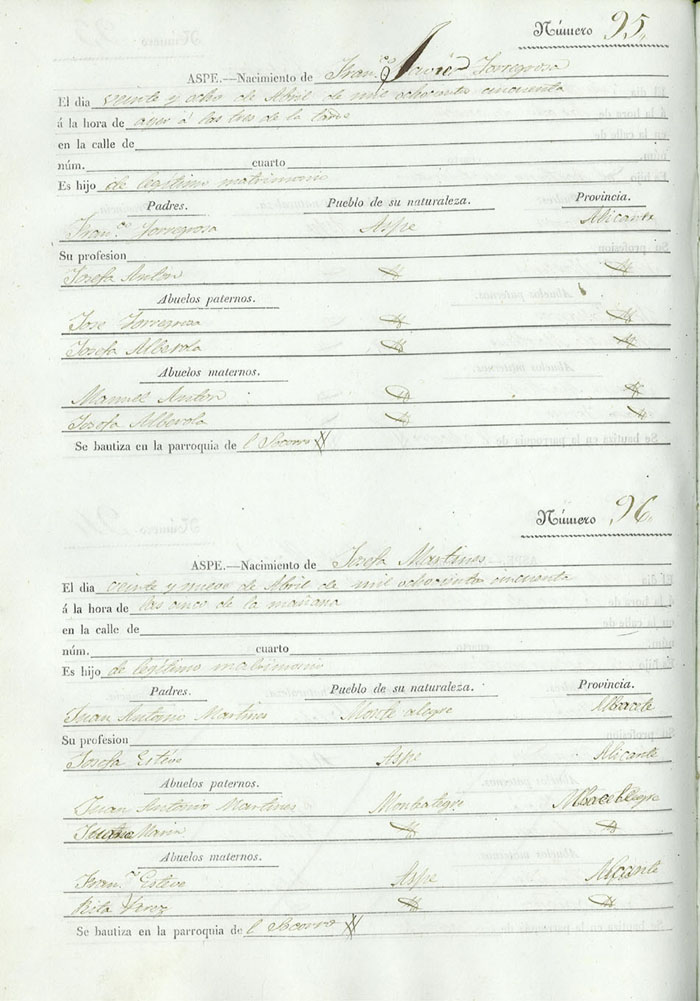 Número 95.
ASPE.—Nacimiento de Fran.co Javier Torregrosa
El dia veinte y ocho de Abril de mil ochocientos cincuenta
á la hora de ayer á las tres de la tarde
en la calle de
núm. cuarto
Es hijo de legítimo matrimonio
Padres. Pueblo de su naturaleza. Provincia.
Fran.co Torregrosa Aspe Alicante
Su profesion
Josefa Anton
Abuelos paternos.
Jose Torregrosa
Josefa Alberola
Abuelos maternos.
Manuel Anton
Josefa Alberola
Se bautiza en la parroquia de l Socorro
Número 96.
ASPE.—Nacimiento de Josefa Martines
El dia veinte y nueve de Abril de mil ochocientos cincuenta
á la hora de las once de la mañana
en la calle de
núm. cuarto
Es hijo de legítimo matrimonio
Padres. Pueblo de su naturaleza. Provincia.
Juan Antonio Martines Monte alegre Albacete
Su profesion
Josefa Estéve Aspe Alicante
Abuelos paternos.
Juan Antonio Martines Montalegre
Maria
Abuelos maternos.
Fran.co Esteve Aspe Alicante
Rita Perez
Se bautiza en la parroquia de l Socorro